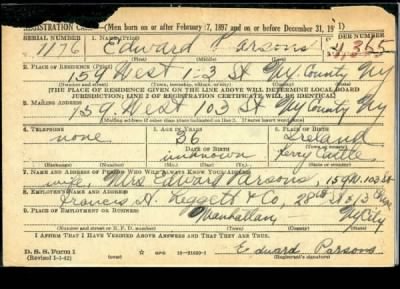 REGISTRATION CARD—(Men born on or after February 17, 1897 and on or before December 31, 1921)
SERIAL NUMBER 1. NAME (Print) ORDER NUMBER
1176 Edward Parsons 365
2. PLACE OF RESIDENCE (Print)
159 West 103 St N.Y. County NY
(Number and street) (Town, township, village, or city) (County) (State)
[THE PLACE OF RESIDENCE GIVEN ON THE LINE ABOVE WILL DETERMINE LOCAL BOARD
JURISDICTION; LINE 2 OF REGISTRATION CERTIFICATE WILL BE IDENTICAL]
3. MAILING ADDRESS
159 West 103 St NY County NY
[Mailing address if other than place indicated on line 2. If same insert word same]
4. TELEPHONE 5. AGE IN YEARS 6. PLACE OF BIRTH
none 36 Ireland
DATE OF BIRTH
unknown Kerry
(Exchange) (Number) (Mo.) (Day) (Yr.) (State or country)
7. NAME AND ADDRESS OF PERSON WHO WILL ALWAYS KNOW YOUR ADDRESS
wife, Mrs Edward Parsons, 159 W. 103 St
8. EMPLOYER'S NAME AND ADDRESS
Francis H. Leggett & Co,
9. PLACE OF EMPLOYMENT OR BUSINESS
Manhattan NY City
(Number and street or R. F. D. number) (Town) (County) (State)
I AFFIRM THAT I HAVE VERIFIED ABOVE ANSWERS AND THAT THEY ARE TRUE.
D. S. S. Form 1
(Revised 1-1-42) GPO 16—21630-1
Edward Parsons
(Registrant's signature)